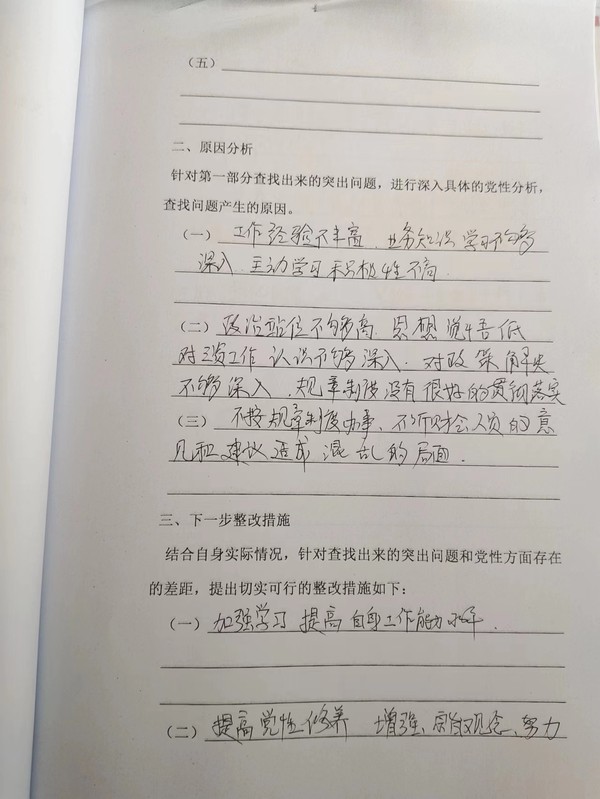 （五）
二、原因分析
针对第一部分查找出来的突出问题，进行深入具体的党性分析，
查找问题产生的原因。
（一） 工作经验不丰富、业务知识学习不够
深入、主动学习积极性不高
（二） 政治站位不够高、思想觉悟低
对三资工作认识不够深入、对政策解决
不够深入、规章制度没有很好的贯彻落实
（三） 不按规章制度办事、不听财会人员的意
见和建议造成混乱的局面.
三、下一步整改措施
结合自身实际情况，针对查找出来的突出问题和党性方面存在
的差距，提出切实可行的整改措施如下：
（一） 加强学习 提高自身工作能力水平.
（二） 提高党性修养 增强、宗旨观念、努力